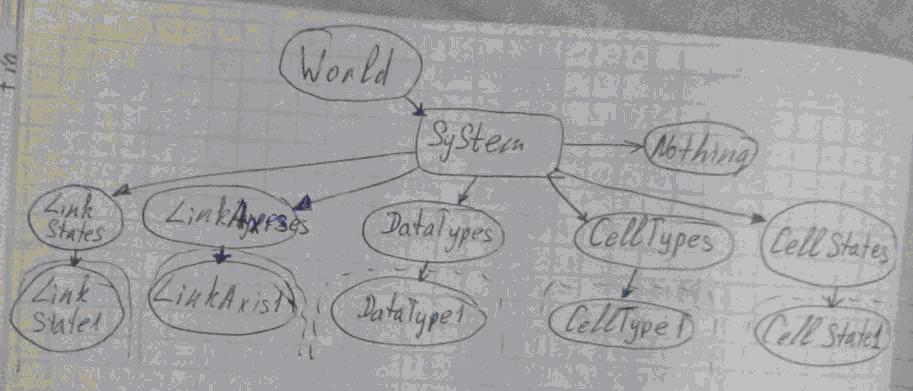 World
System
Nothing
Link
States
DataTypes
CellTypes
Cell States
Link
State1
LinkAxis1
DataType1
CellType1
Cell State1